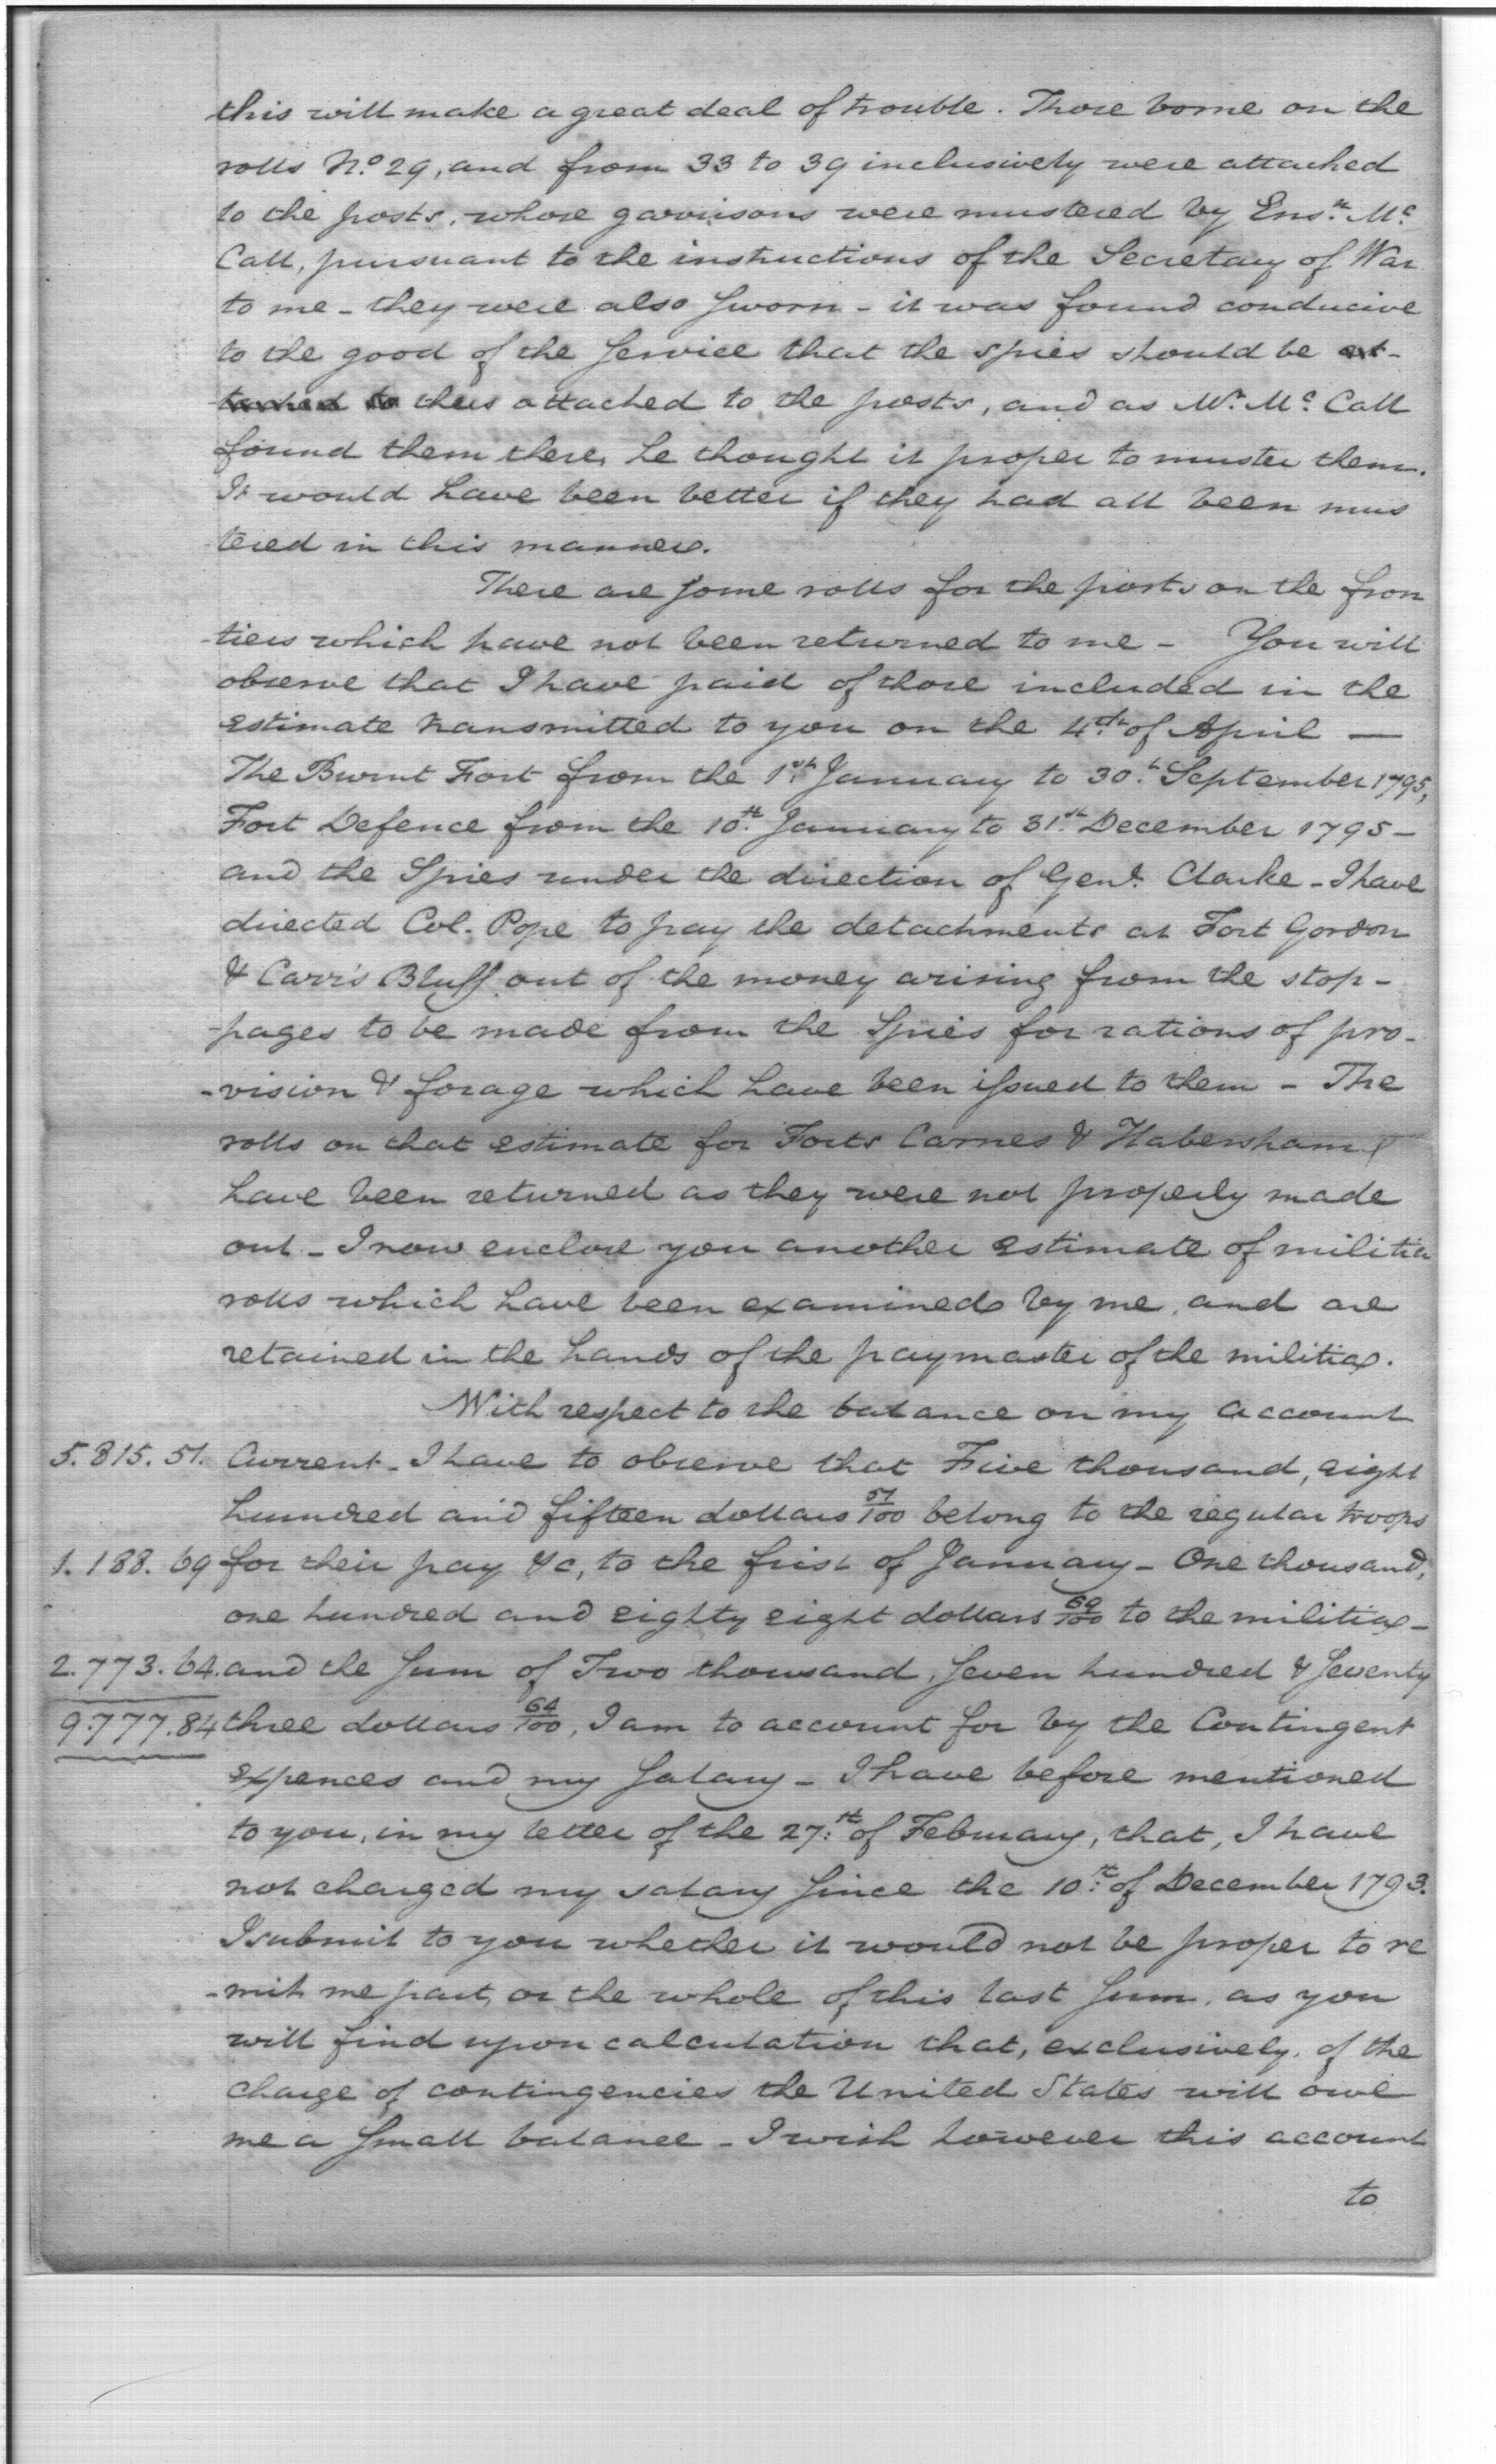 this will make a great deal of trouble. Those borne on the
rolls No. 29, and from 33 to 39 inclusively were attached
to the posts, whose garrisons were mustered by Ensn. Mc.
Call, pursuant to the instructions of the Secretary of War
to me - they were also sworn - it was found conducive
to the good of the service that the spies should be at-
tached to thus attached to the posts, and as Mr. Mc. Call
found them there, he thought it proper to muster them.
It would have been better if they had all been mus
tered in this manner.
There are some rolls for the posts on the fron
-tiers which have not been returned to me - You will
observe that I have paid of those included in the
estimate transmitted to you on the 4th. of April —
The Burnt Fort from the 1st. January to 30th. September 1795,
Fort Defence from the 10th. January to 31st. December 1795 -
and the Spies under the direction of Genl. Clarke - I have
directed Col. Pope to pay the detachments at Fort Gordon
& Carr's Bluff out of the money arising from the stop-
-pages to be made from the Spies for rations of pro-
-vision & forage which have been issued to them - The
rolls on that estimate for Forts Carnes & Habersham
have been returned as they were not properly made
out - I now enclose you another estimate of militia
rolls which have been examined by me, and are
retained in the hands of the paymaster of the militia.
With respect to the balance on my account
5.815.51. Current - I have to observe that Five thousand, eight
hundred and fifteen dollars 51/100 belong to the regular troops
1.188.69 for their pay &c, to the first of January - One thousand,
one hundred and eighty eight dollars 69/100 to the militia -
2.773.64. and the sum of Two thousand, seven hundred & seventy
9.777.84 three dollars 64/100, I am to account for by the Contingent
expences and my salary - I have before mentioned
to you, in my letter of the 27th. of February, that, I have
not charged my salary since the 10th. of December 1793.
I submit to you whether it would not be proper to re
-mit me part, or the whole of this last sum, as you
will find upon calculation that, exclusively, of the
charge of contingencies the United States will owe
me a small balance - I wish however this account
to